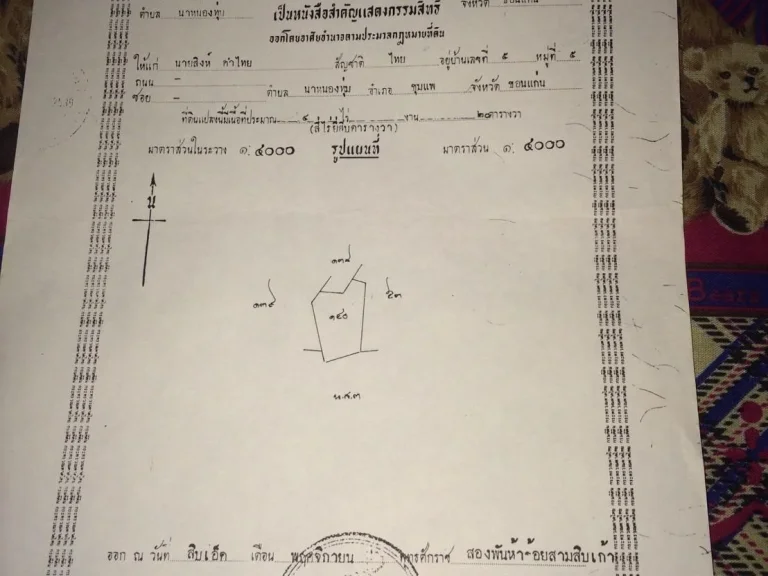 ตำบล นาหนองทุ่ม
จังหวัด ขอนแก่น
เป็นหนังสือสำคัญแสดงกรรมสิทธิ์
ออกโดยอาศัยอำนาจตามประมวลกฎหมายที่ดิน
ให้แก่ นายสิงห์ คำไทย สัญชาติ ไทย อยู่บ้านเลขที่ ๕ หมู่ที่ ๕
ถนน -
ซอย - ตำบล นาหนองทุ่ม อำเภอ ชุมแพ จังหวัด ขอนแก่น
ที่ดินแปลงนี้มีเนื้อที่ประมาณ ๔ ไร่ - งาน ๒๐ ตารางวา
(สี่ไร่ยี่สิบตารางวา)
มาตราส่วนในระวาง ๑: ๔๐๐๐ รูปแผนที่ มาตราส่วน ๑: ๔๐๐๐
น
๑๓๘
๑๓๙ ๕๓
๑๔๐
น.ส.๓
ออก ณ วันที่ สิบเอ็ด เดือน พฤศจิกายน พุทธศักราช สองพันห้าร้อยสามสิบเก้า
Bears